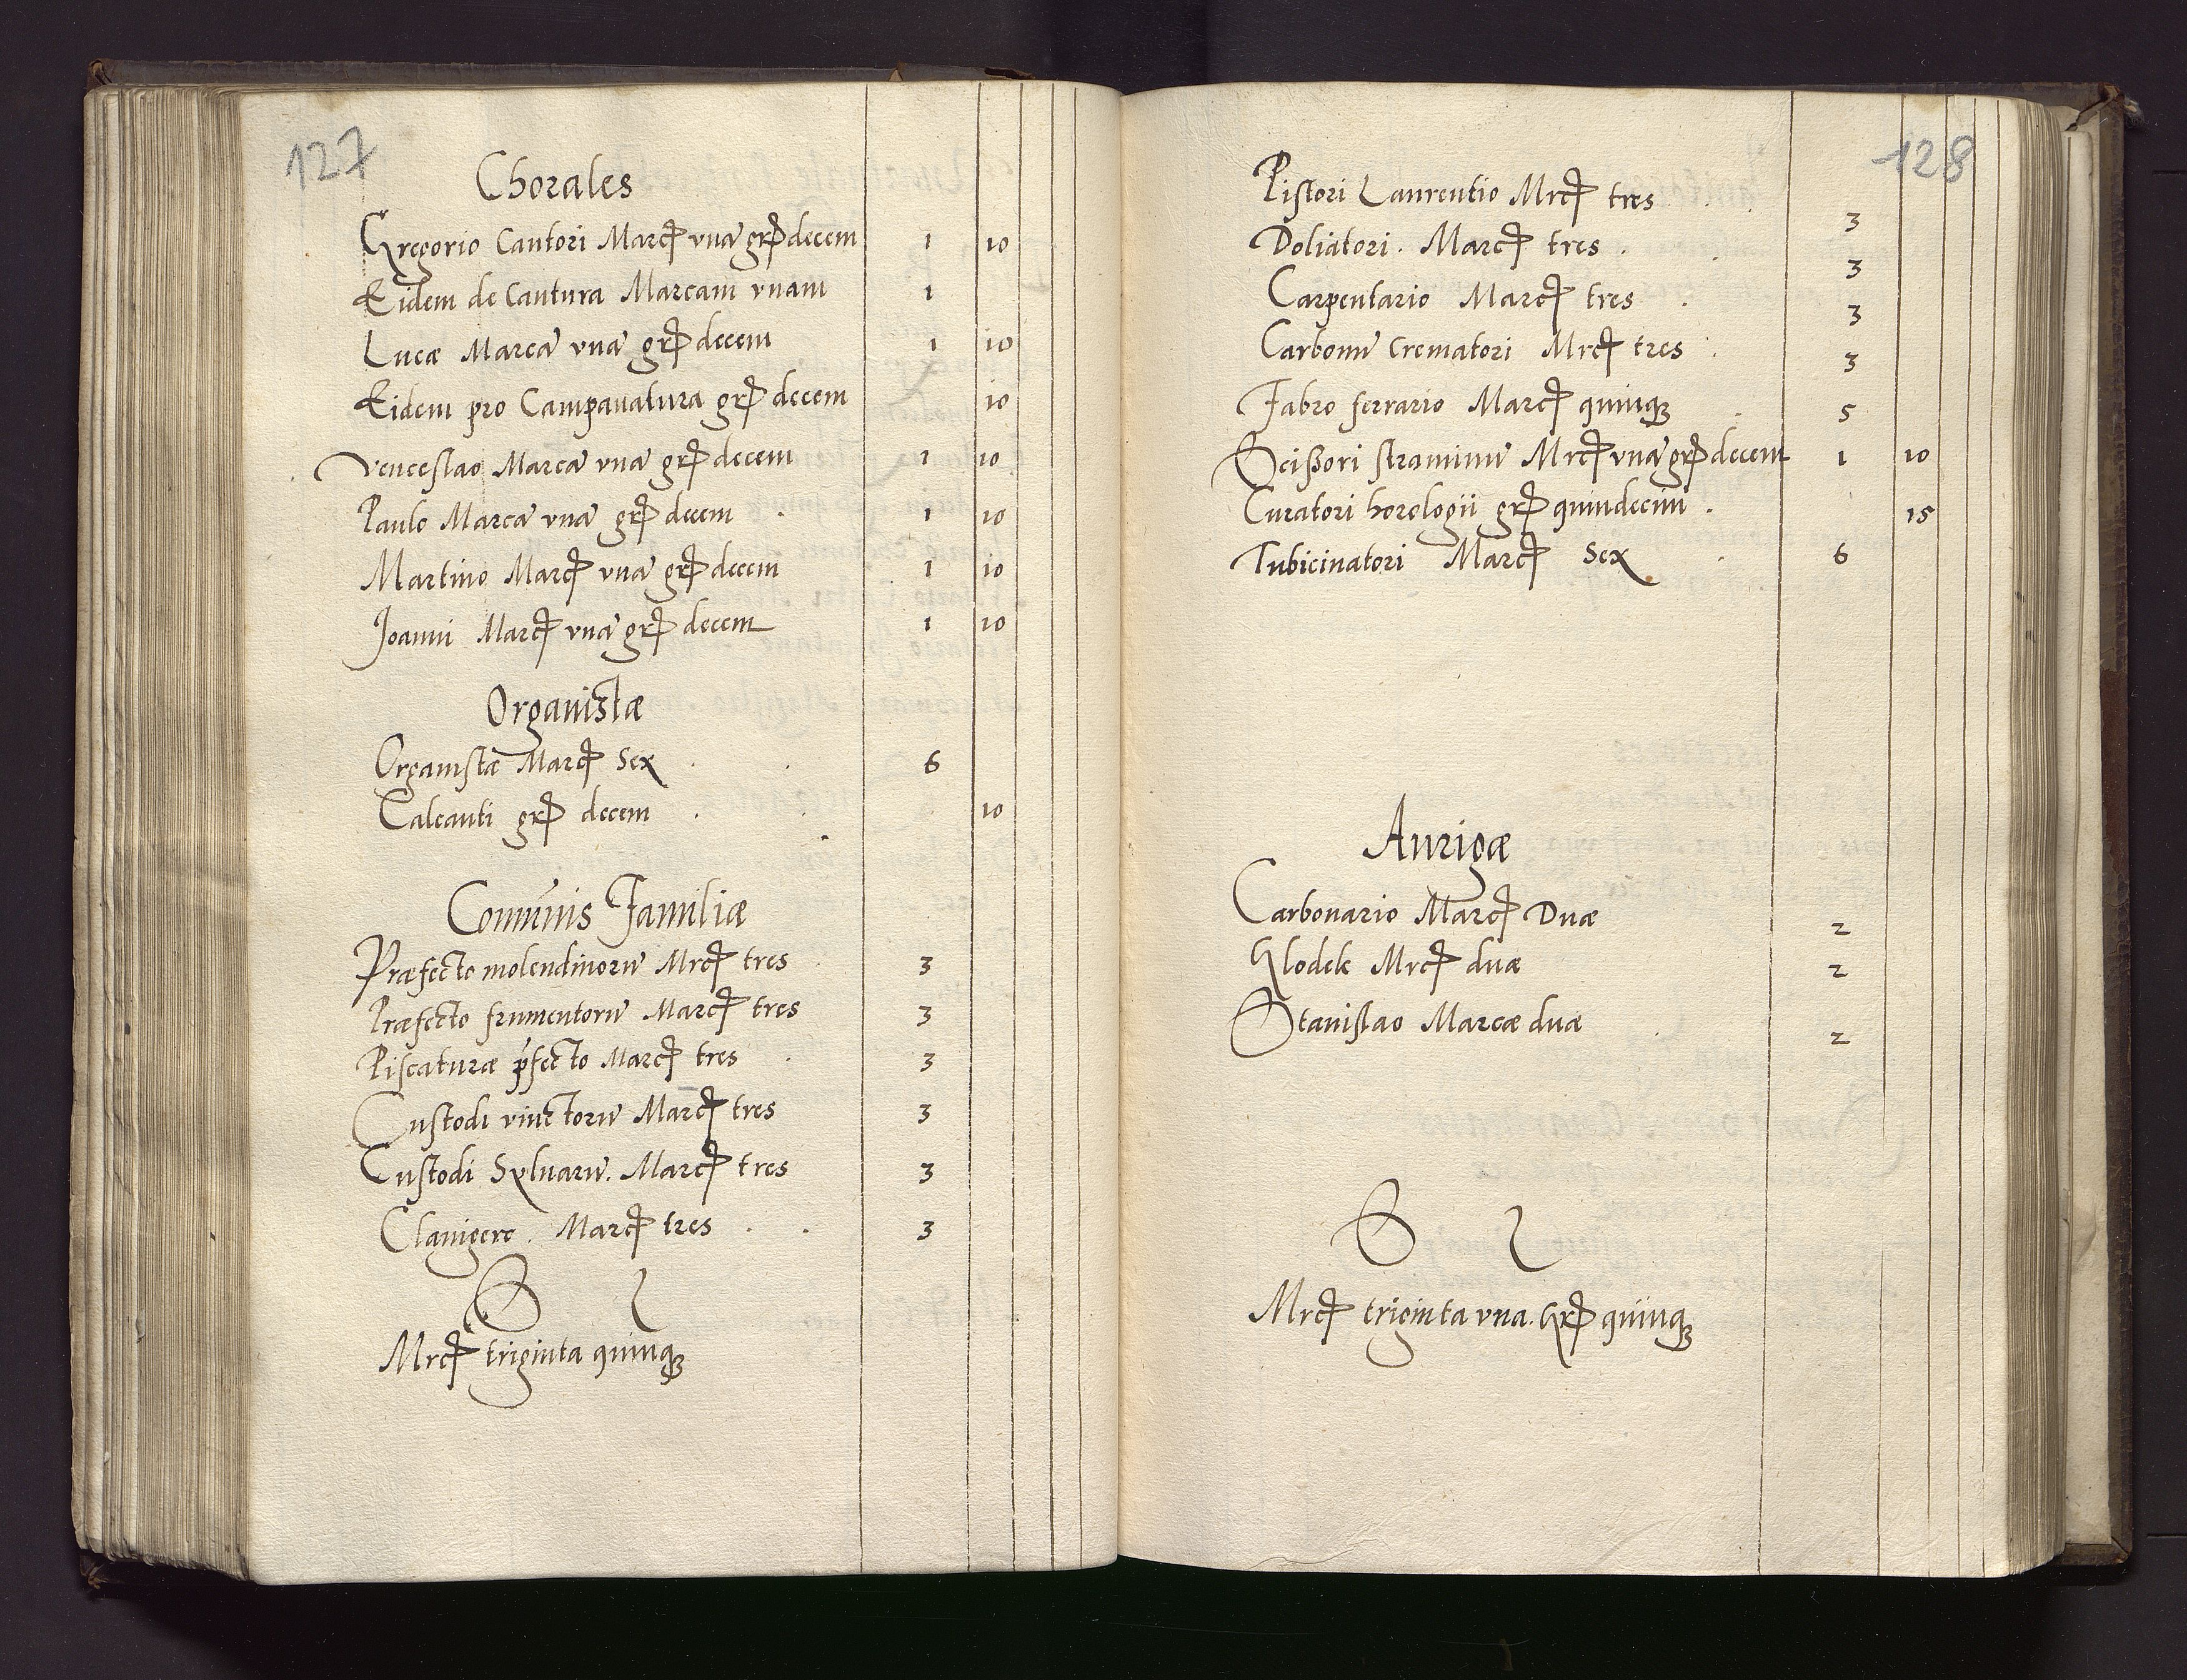 127
Chorales
Gregorio Cantori Marc. vnā gr. decem 1 10
Eidem de Cantura Marcam vnam 1
Lucæ Marcā vnā gr. decem 1 10
Eidem pro Campanatura gr. decem 10
Venceslao Marcā vnā gr. decem 1 10
Paulo Marcā vnā gr. decem . 1 10
Martino Marc. vnā gr. decem 1 10
Joanni Marc. vnā gr. decem 1 10
Organistæ
Organistæ Marc. Sex . . 6
Calcanti gr. decem . . 10
Comunis Familiæ
Præfecto molendinorū Mrc. tres . 3
Præfecto frumentorū Marc. tres 3
Piscaturæ p̄fecto Marc. tres . 3
Custodi vinctorū Marc. tres 3
Custodi Syluarū. Marc. tres 3
Clauigero . Marc. tres . . 3
S
Mrc. triginta quinq3
128
Pistori Laurentio Mrc. tres . . 3
Doliatori . Marc. tres . . 3
Carpentario Marc. tres . 3
Carbonū Crematori Mrc. tres . 3
Fabro ferrario Marc. quinq3 . 5
Scissori straminū Mrc. vnā gr. decem 1 10
Curatori horologii gr. quindecim . 15
Tubicinatori Marc. Sex . 6
Aurigæ
Carbonario Marc. Duæ 2
Klodek Mrc. duæ 2
Stanislao Marcæ duæ . 2
S
Mrc. triginta vna. Gr. quinq3